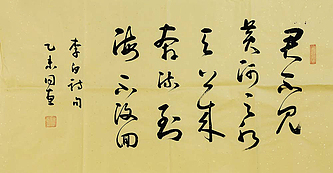 君不见
黄河之水
天上来
奔流到
海不复回
李白诗句
乙未国画